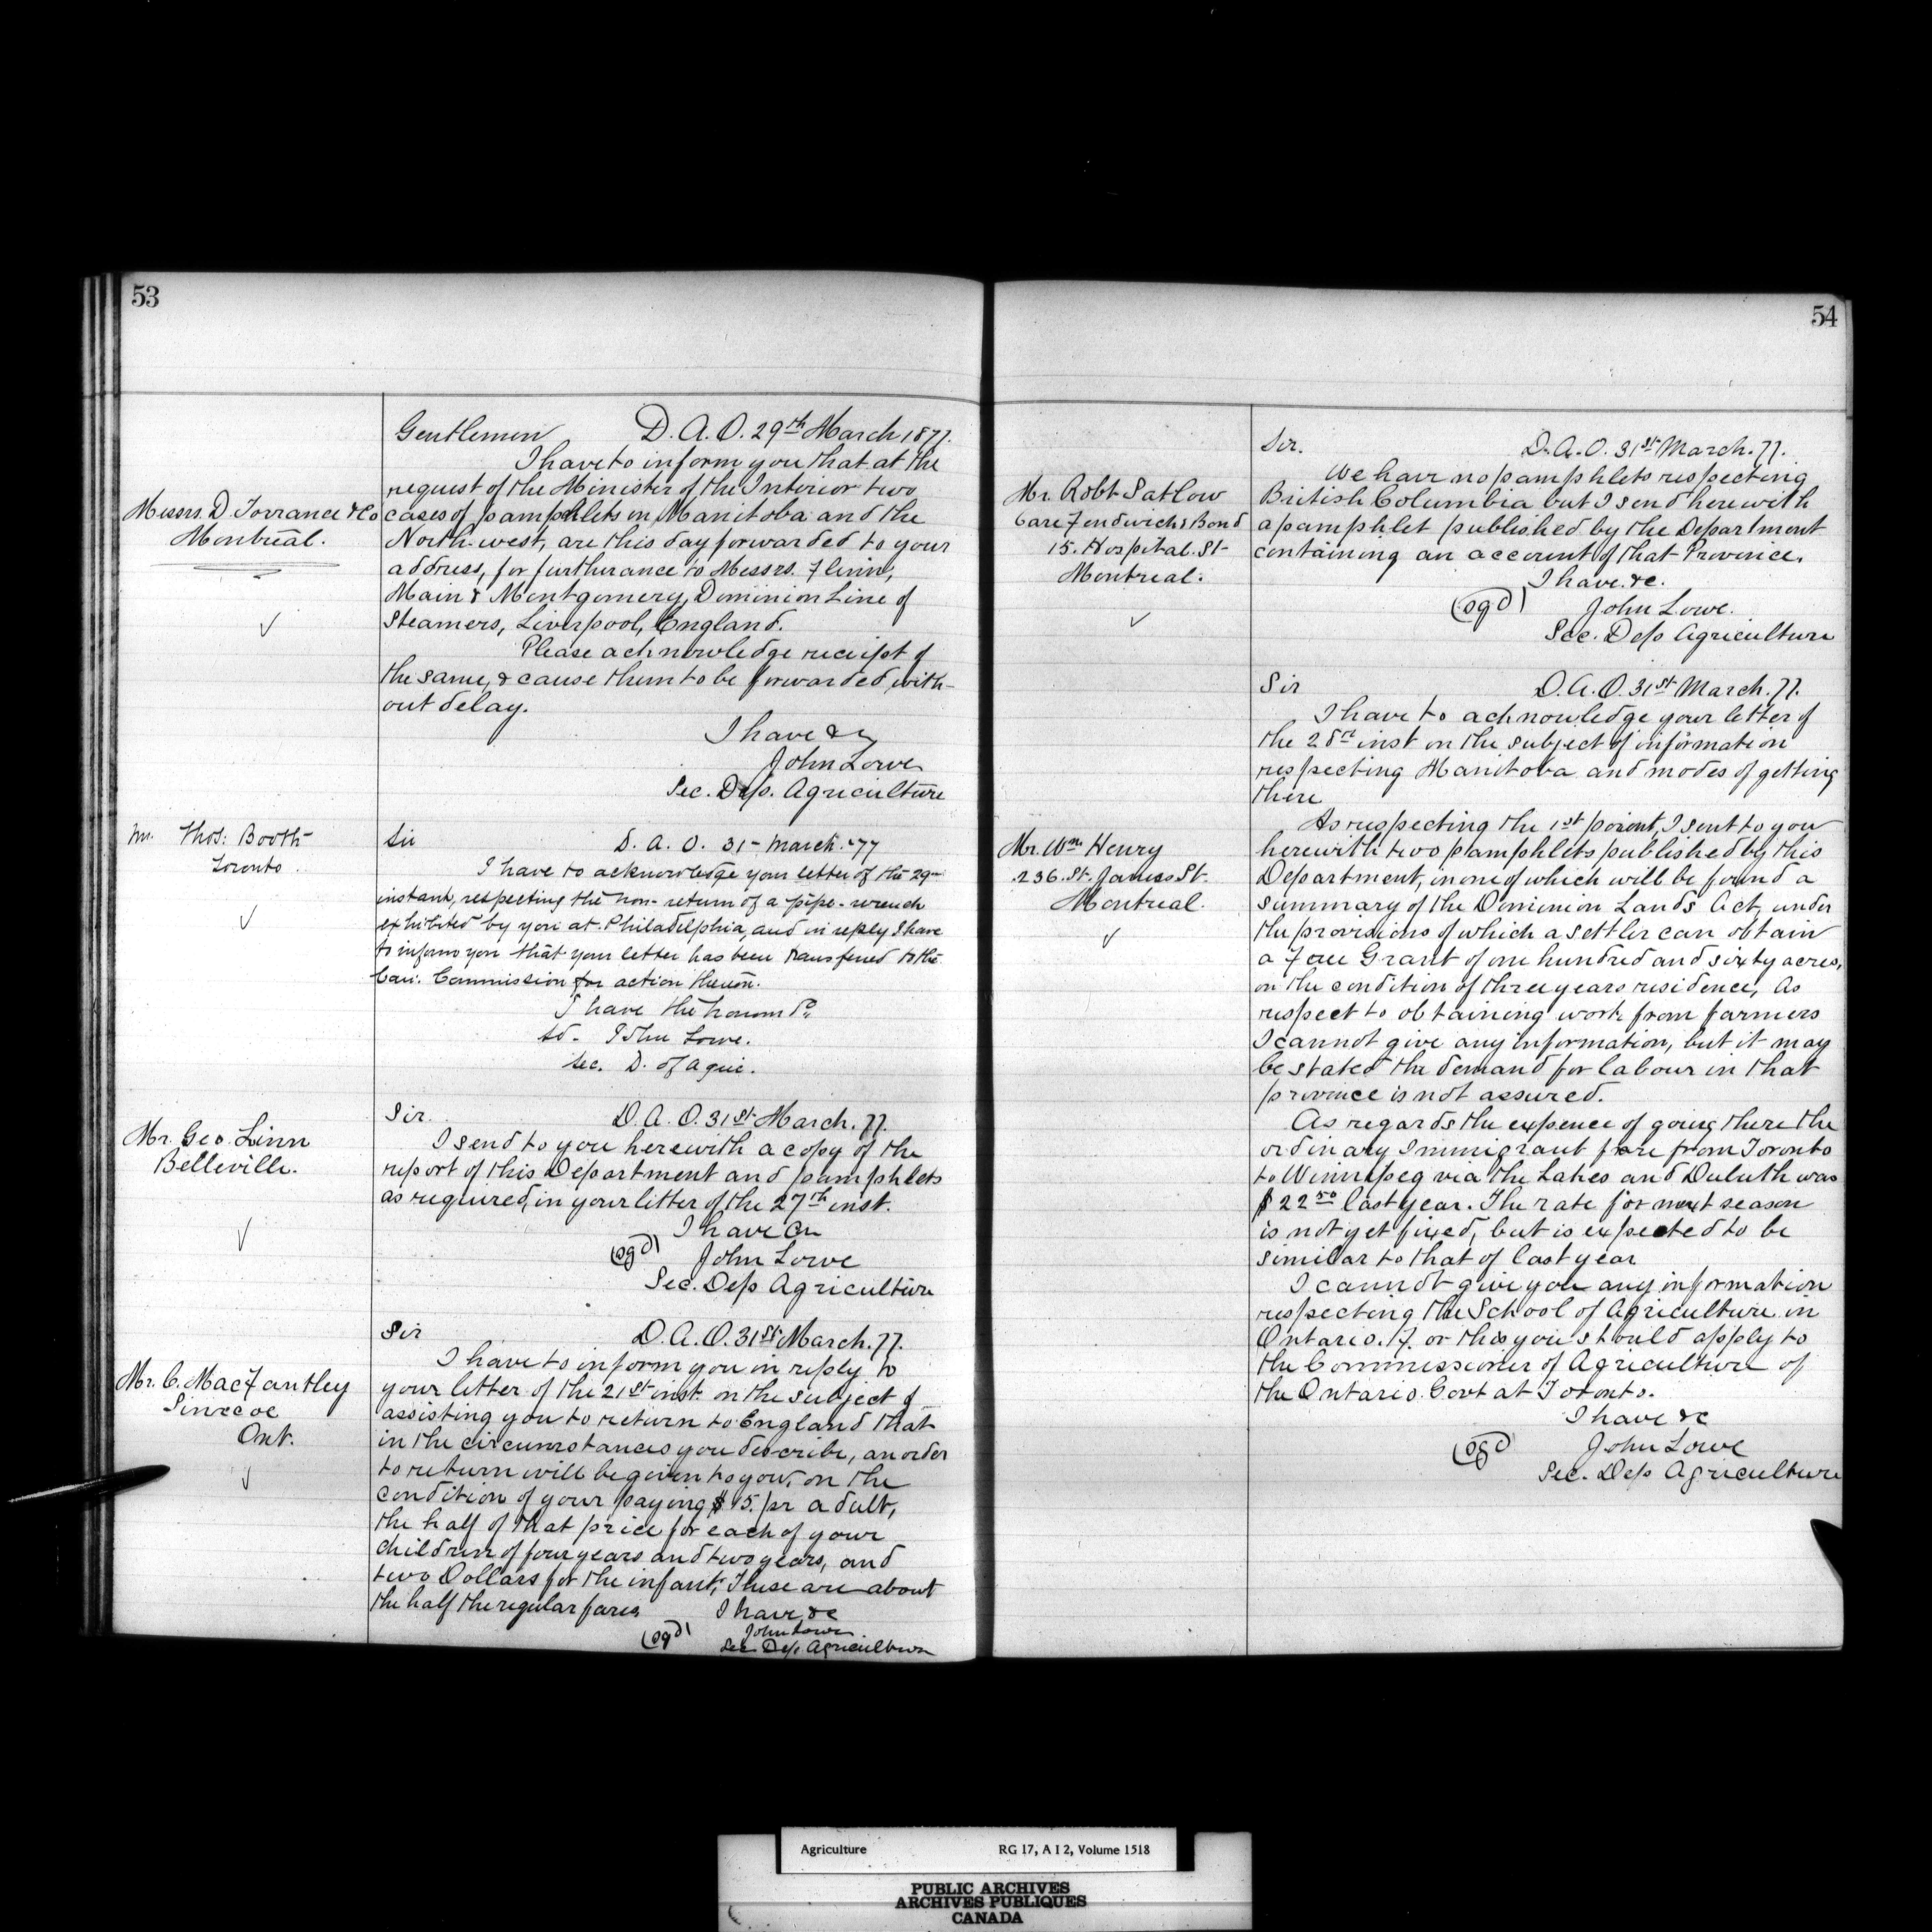 53
Gentlemen D. A. O. 29th March 1877.
I have to inform you that at the
request of the Minister of the Interior two
Messrs. D. Torrance & Co
Montreal.
cases of pamphlets on Manitoba and the
North-west, are this day forwarded to your
address, for furtherance to Messrs. Flinn,
Main & Montgomery, Dominion Line of
Steamers, Liverpool, England.
Please acknowledge receipt of
the same, & cause them to be forwarded, with-
out delay.
I have &c
John Lowe
Sec. Dep. Agriculture
Mr. Thos: Booth
Toronto
Sir D. A. O. 31 - March. '77
I have to acknowledge your letter of the 29th
instant, respecting the non-return of a pipe-wrench
exhibited by you at Philadelphia, and in reply I have
to inform you that your letter has been transferred to the
Can. Commission for action thereon.
I have the honour &c
sd. John Lowe.
Sec. D. of Agric.
Mr. Geo. Linn
Belleville.
Sir. D. A. O. 31st March. 77.
I send to you herewith a copy of the
report of this Department and pamphlets
as required, in your letter of the 27th inst.
I have &c
(sgd) John Lowe
Sec. Dep Agriculture
Mr. C. MacFantley
Simcoe
Ont.
Sir D. A. O. 31st March. 77.
I have to inform you in reply to
your letter of the 21st inst. on the subject of
assisting you to return to England that
in the circumstances you describe, an order
to return will be given to you, on the
condition of your paying $15. pr adult,
the half of that price for each of your
children of four years and two years, and
two Dollars for the infant; These are about
the half the regular fares I have &c
(sgd) John Lowe.
Sec Dep. Agriculture
54
Mr. Robt Satlow
Care Fendwich & Bond
15. Hospital. St
Montreal.
Sir. D. A. O. 31st March. 77.
We have no pamphlets respecting
British Columbia but I send herewith
a pamphlet published by the Department
containing an account of that Province.
I have &c.
(sgd) John Lowe.
Sec. Dep Agriculture
Mr. Wm Henry
236. St. James St.
Montreal.
Sir D. A. O. 31st March. 77.
I have to acknowledge your letter of
the 28th inst on the subject of information
respecting Manitoba and modes of getting
there
As respecting the 1st point, I sent to you
herewith two pamphlets published by this
Department, in one of which will be found a
summary of the Dominion Lands Act, under
the provisions of which a settler can obtain
a Free Grant of one hundred and sixty acres,
on the condition of three years residence, As
respect to obtaining work from farmers
I cannot give any information, but it may
be stated the demand for labour in that
province is not assured.
As regards the expence of going there the
ordinary Immigrant fare from Toronto
to Winnipeg via the Lakes and Duluth was
$22 50 last year. The rate for next season
is not yet fixed, but is expected to be
similar to that of last year
I cannot give you any information
respecting the School of Agriculture in
Ontario. For this you should apply to
the Commissioner of Agriculture of
the Ontario Govt at Toronto.
I have &c
(sgd) John Lowe
Sec. Dep Agriculture
Agriculture RG 17, A I 2, Volume 1518
PUBLIC ARCHIVES
ARCHIVES PUBLIQUES
CANADA